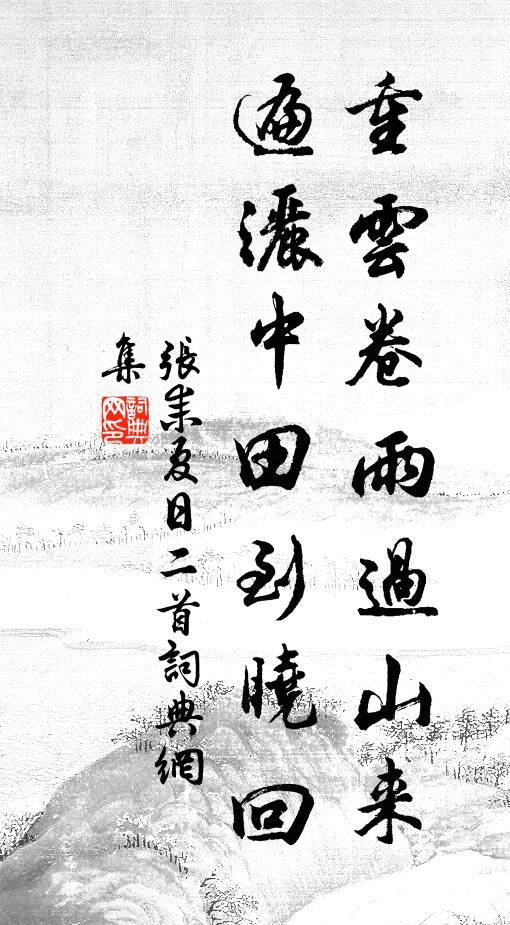 重雲卷雨過山来
遍灑中田到曉回
張耒夏日二首詞典網
集
詞典網印